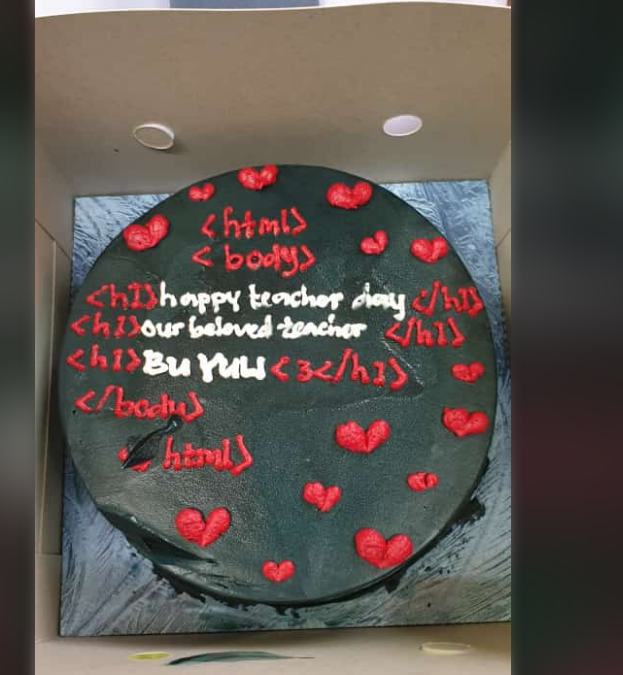 <html>
<body>
<h1>happy teacher day </h1>
<h1>our beloved teacher </h1>
<h1>Bu Yuw <3</h1>
</body>
html>